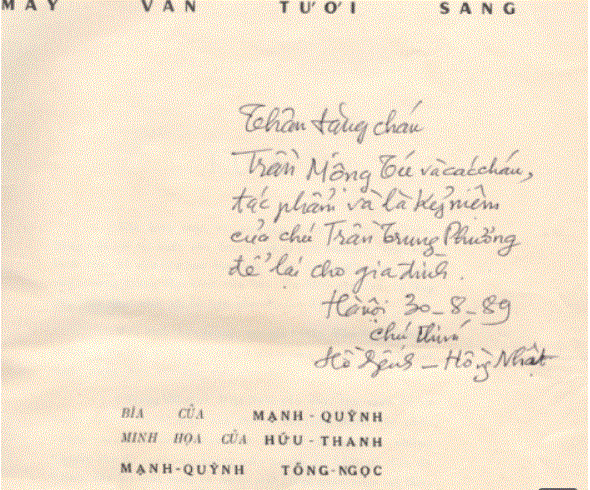 MÂY VẪN TƯƠI SÁNG
Thân tặng cháu
Trần Mộng Tú và các cháu,
tác phẩm và là kỷ niệm
của chú Trần Trung Phương
để lại cho gia đình.
Hà nội 30-8-89
chú thím
Hồng Nhật
BÌA CỦA MẠNH-QUỲNH
MINH HỌA CỦA HỮU-THANH
MẠNH-QUỲNH TÔNG-NGỌC